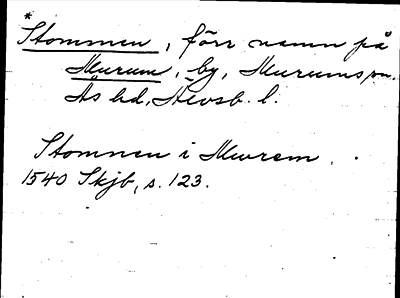 *
Stommen, förr namn på
Murum, by, Murums sn.
Ås hd, Älvsb. l.
Stommen i Mwrem.
1540 Skjb, s. 123.